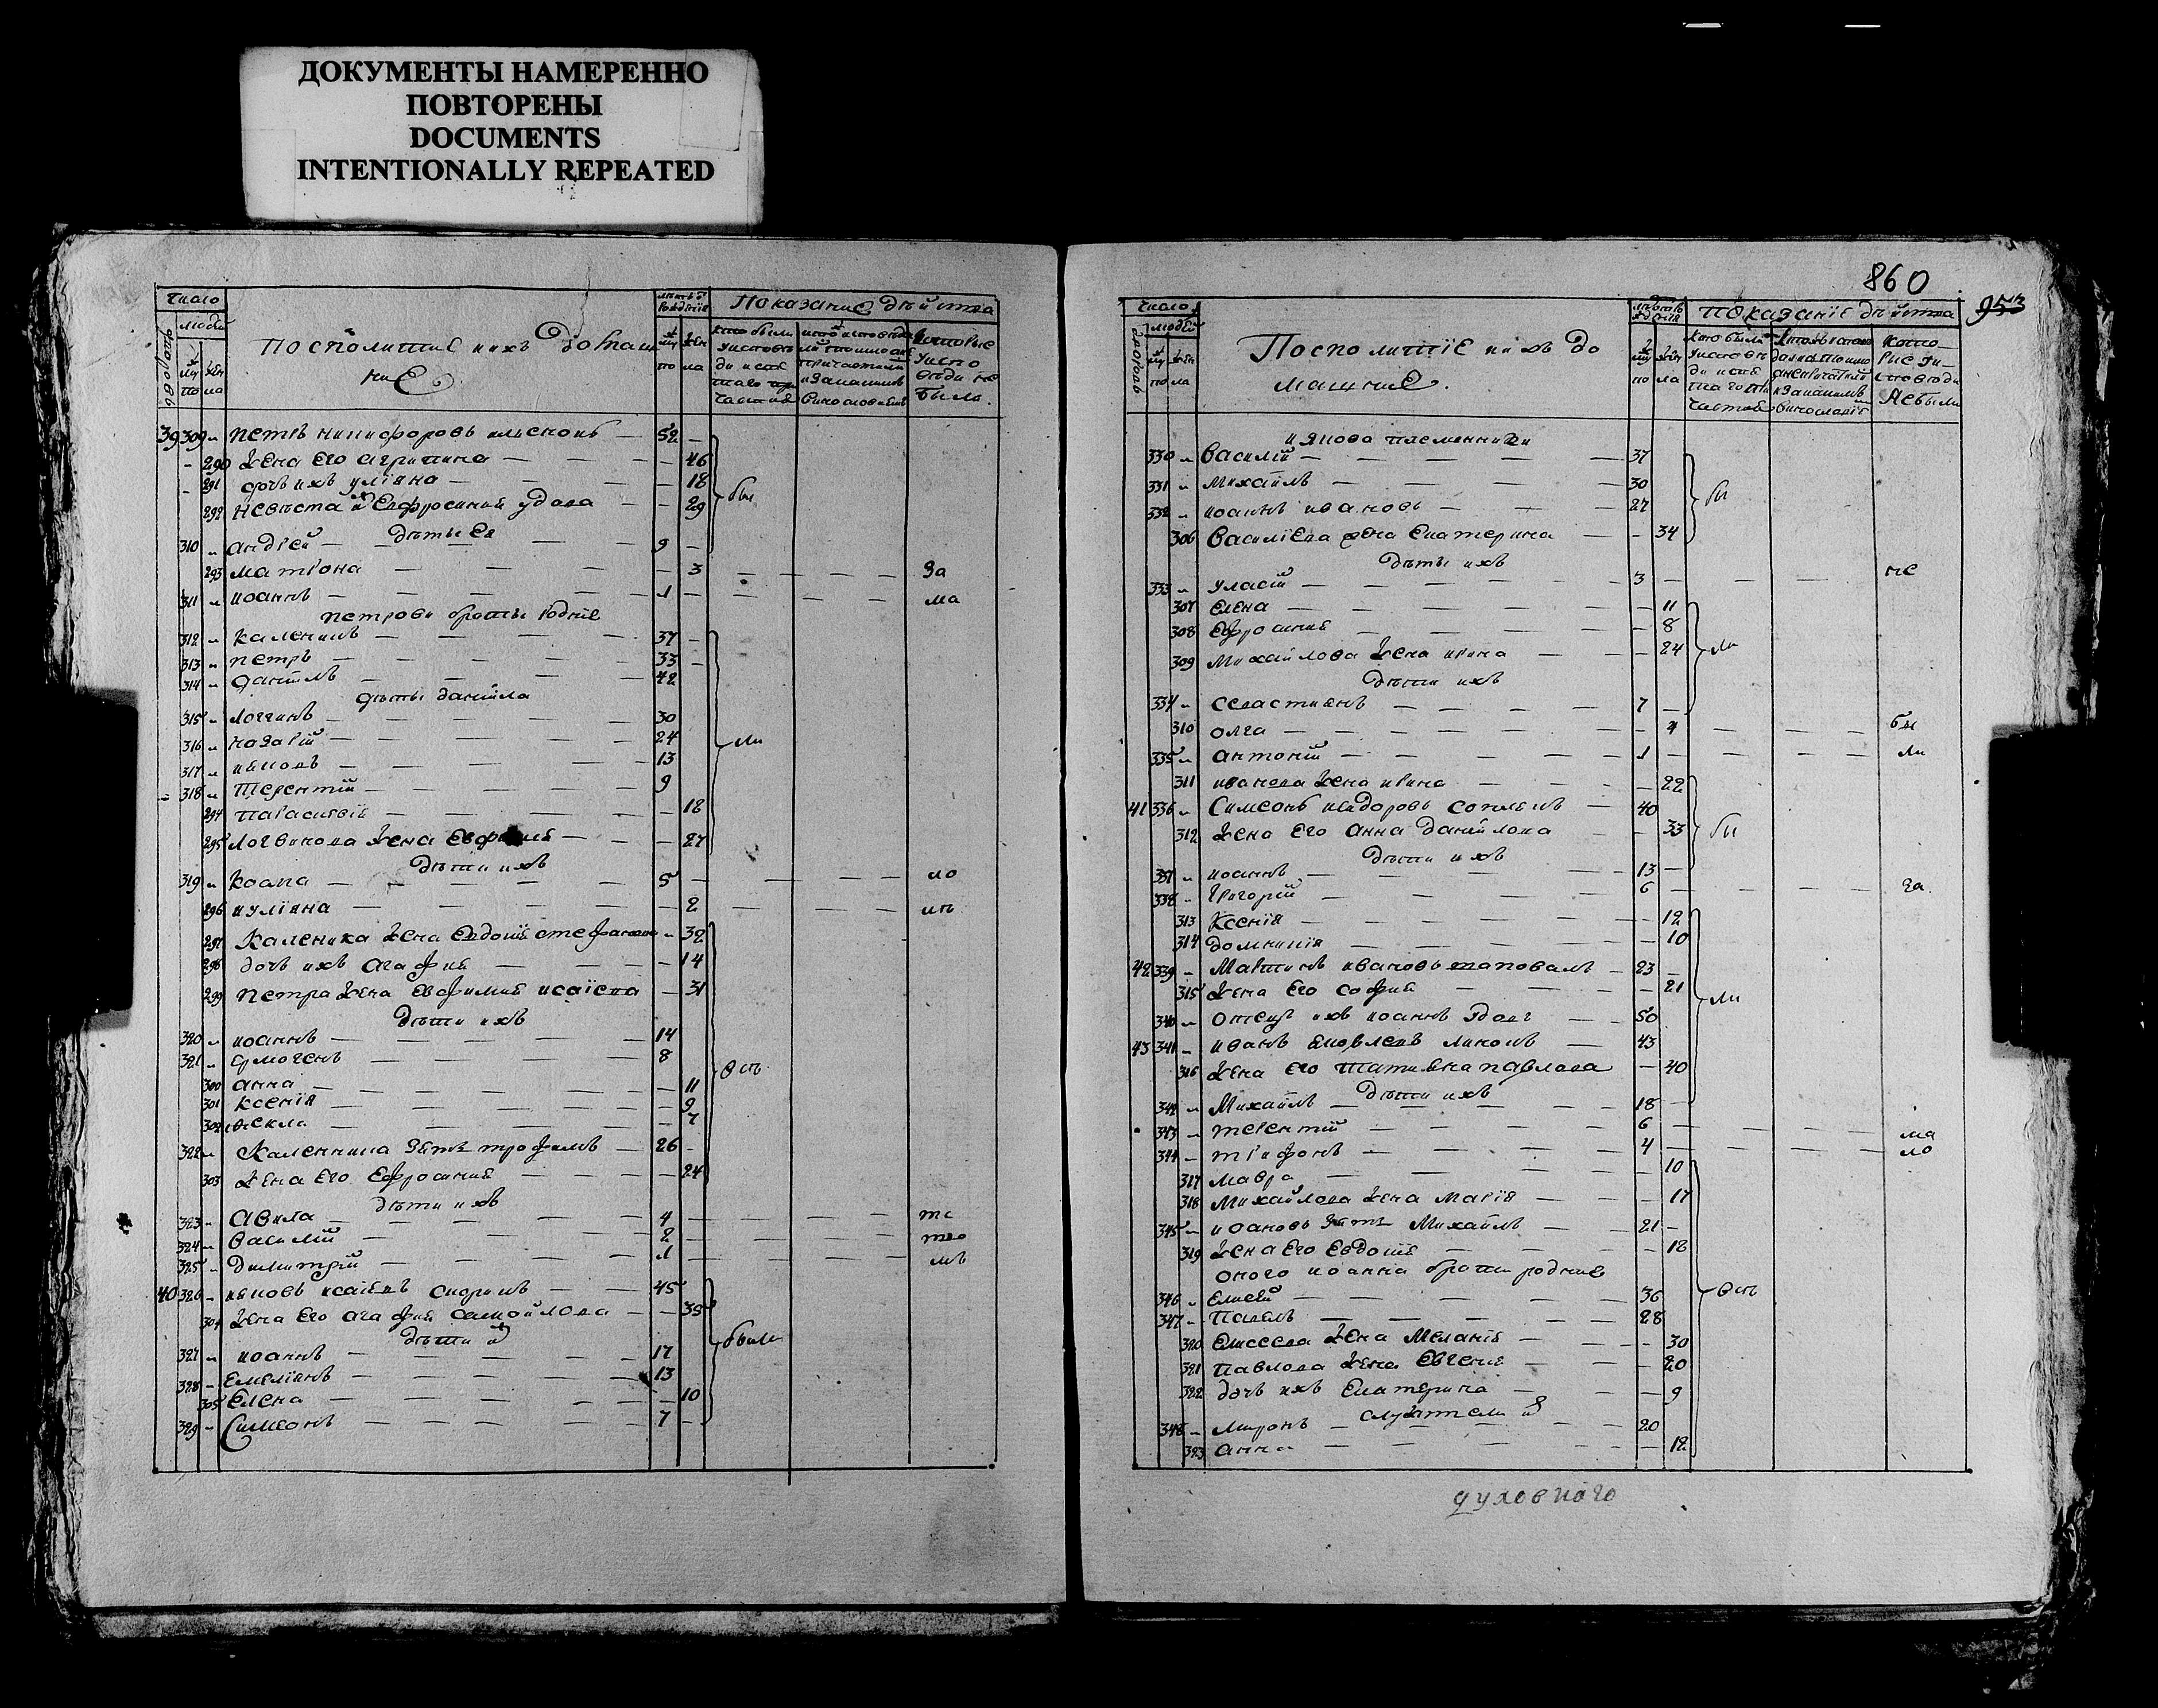 ДОКУМЕНТЫ НАМЕРЕННО
ПОВТОРЕНЫ
DOCUMENTS
INTENTIONALLY REPEATED
Число
людей
Посполитие и ихъ домаш
ние
Показание дѣйства
39 309 петръ никифоровъ 52
290 жена его агрипина 46
291 дочь ихъ улiяна 18
292 невѣста Евфросиния удова 29
дѣты Ея
310 андрѣй 9
293 матрона 3 За
311 иоаннъ 1 ма
петрови браты родние
312 каленикъ 37
313 петръ 33
314 данiилъ 42
дѣты данiила
315 логгинъ 30
316 назарiй 24
317 ияковъ 13
318 терентiй 9
294 парасковiя 12
295 логвинова жена 27
дѣти ихъ
319 козма 5 ло
296 иулiяна 2
297 каленика жена Евдокiя 32
298 дочь ихъ агафия 14
299 петра жена Евфимия исаiева 31
дѣти ихъ
320 иоаннъ 14
321 ярмогенъ 8
300 анна 11
301 ксенiя 9
302 фекла 7
322 каленика зять трофимъ 26
303 жена его Ефросиния 24
дѣти ихъ
323 авила 4
324 василiй 2
325 димитрiй 1
40 326 ияковъ исаiевъ 45
304 жена его агафия самойлова 35 были
дѣти
327 иоаннъ 17
328 Емелiянъ 13
305 Елена 10
329 Симеонъ 7
860
953
Число
людей
Посполитiе и ихъ до
машние
Показанiе дѣйства
иякова племенники
330 василiй 37
331 михаилъ 30
332 иоаннъ ивановъ 27
306 василiева жена Екатерина 34
дѣты ихъ
333 уласiй 3 не
307 елена 11
308 Ефросиния 8
309 михайлова жена ирина 24
дѣти ихъ
334 севастиянъ 7
310 олга 4 бы
335 антонiй 1 ли
311 иванова жена ирина 22
41 336 Симеонъ исидоровъ 40
312 жена его анна данiилова 33
дѣти ихъ
337 иоаннъ 13
338 григорiй 6 за
313 ксенiя 12
314 домникiя 10
42 339 мартинъ ивановъ шаповалъ 23
315 жена его софия 21
340 отецъ ихъ иоаннъ 50
43 341 иванъ яковлевъ 43
316 жена его татияна павлова 40
дѣти ихъ
342 михаилъ 18
343 терентiй 6 ма
344 трифонъ 4 ло
317 мавра 10
318 михайлова жена марiя 17
345 иоановъ зять михаилъ 21
319 жена его евдокiя 18
оного иоанна брати родние
346 Елисей 36
347 павелъ 28
320 Елисеева жена меланiя 30
321 павлова жена Евгения 20
322 дочь ихъ Екатерина 9
служители
348 миронъ 20
323 анна 12
духовного